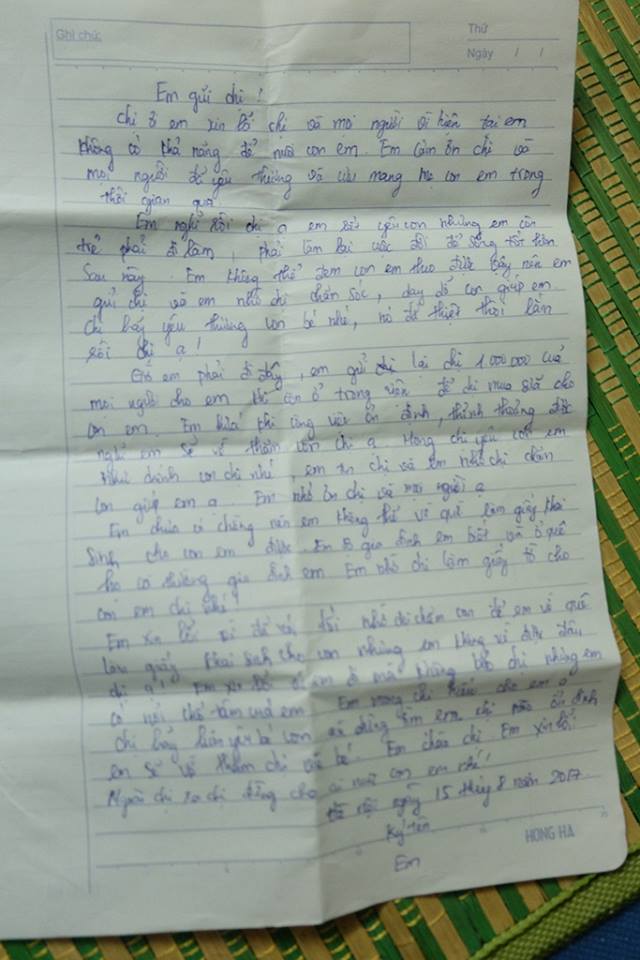 Ghi chú:
Thứ
Ngày / /
Em gửi chị !
Chị ơi em xin lỗi chị và mọi người vì hiện tại em
không có khả năng để nuôi con em. Em cảm ơn chị và
mọi người đã yêu thương và cưu mang mẹ con em trong
thời gian qua
Em nghĩ rồi chị ạ em rất yêu con nhưng em còn
trẻ phải đi làm, phải làm lại cuộc đời để sống tốt hơn
Sau này. Em không thể đem con em theo được vậy nên em
gửi chị và em nhờ chị chăm sóc, dạy dỗ con giúp em
chị hãy yêu thương con bé nhé, nó đã thiệt thòi lắm
rồi chị ạ !
Giờ em phải đi đây, em gửi lại chị 1.000.000 của
mọi người cho em khi còn ở trong viện để chị mua sữa cho
con em. Em hứa khi công việc ổn định, thỉnh thoảng được
nghỉ em sẽ về thăm con chị ạ. Mong chị yêu con em
như chính con chị nhé, em tin chị và em nhờ chị chăm
con giúp em ạ. Em nhớ ơn chị và mọi người ạ
Em chưa có chồng nên em không thể về quê làm giấy khai
Sinh cho con em được. Em gia đình em biết và ở quê
họ gia đình em. Em nhờ chị làm giấy tờ cho
con em chị nhé!
Em xin lỗi vì đã nói dối nhờ chị chăm con để em về quê
làm giấy khai sinh cho con nhưng em không về được đâu
chị ạ! Em xin lỗi vì em không chị nhưng em
có nỗi khổ tâm của em. Em mong chị hiểu cho em ạ
Chị hãy bé con và đừng tìm em, khi nào ổn định
em sẽ về thăm chị với bé. Em chào chị. Em xin lỗi!
Ngoài chị ra chị đừng cho ai nuôi con em nhé!
Hà Nội ngày 15 tháng 8 năm 2017.
Ký tên
Em
HONG HA